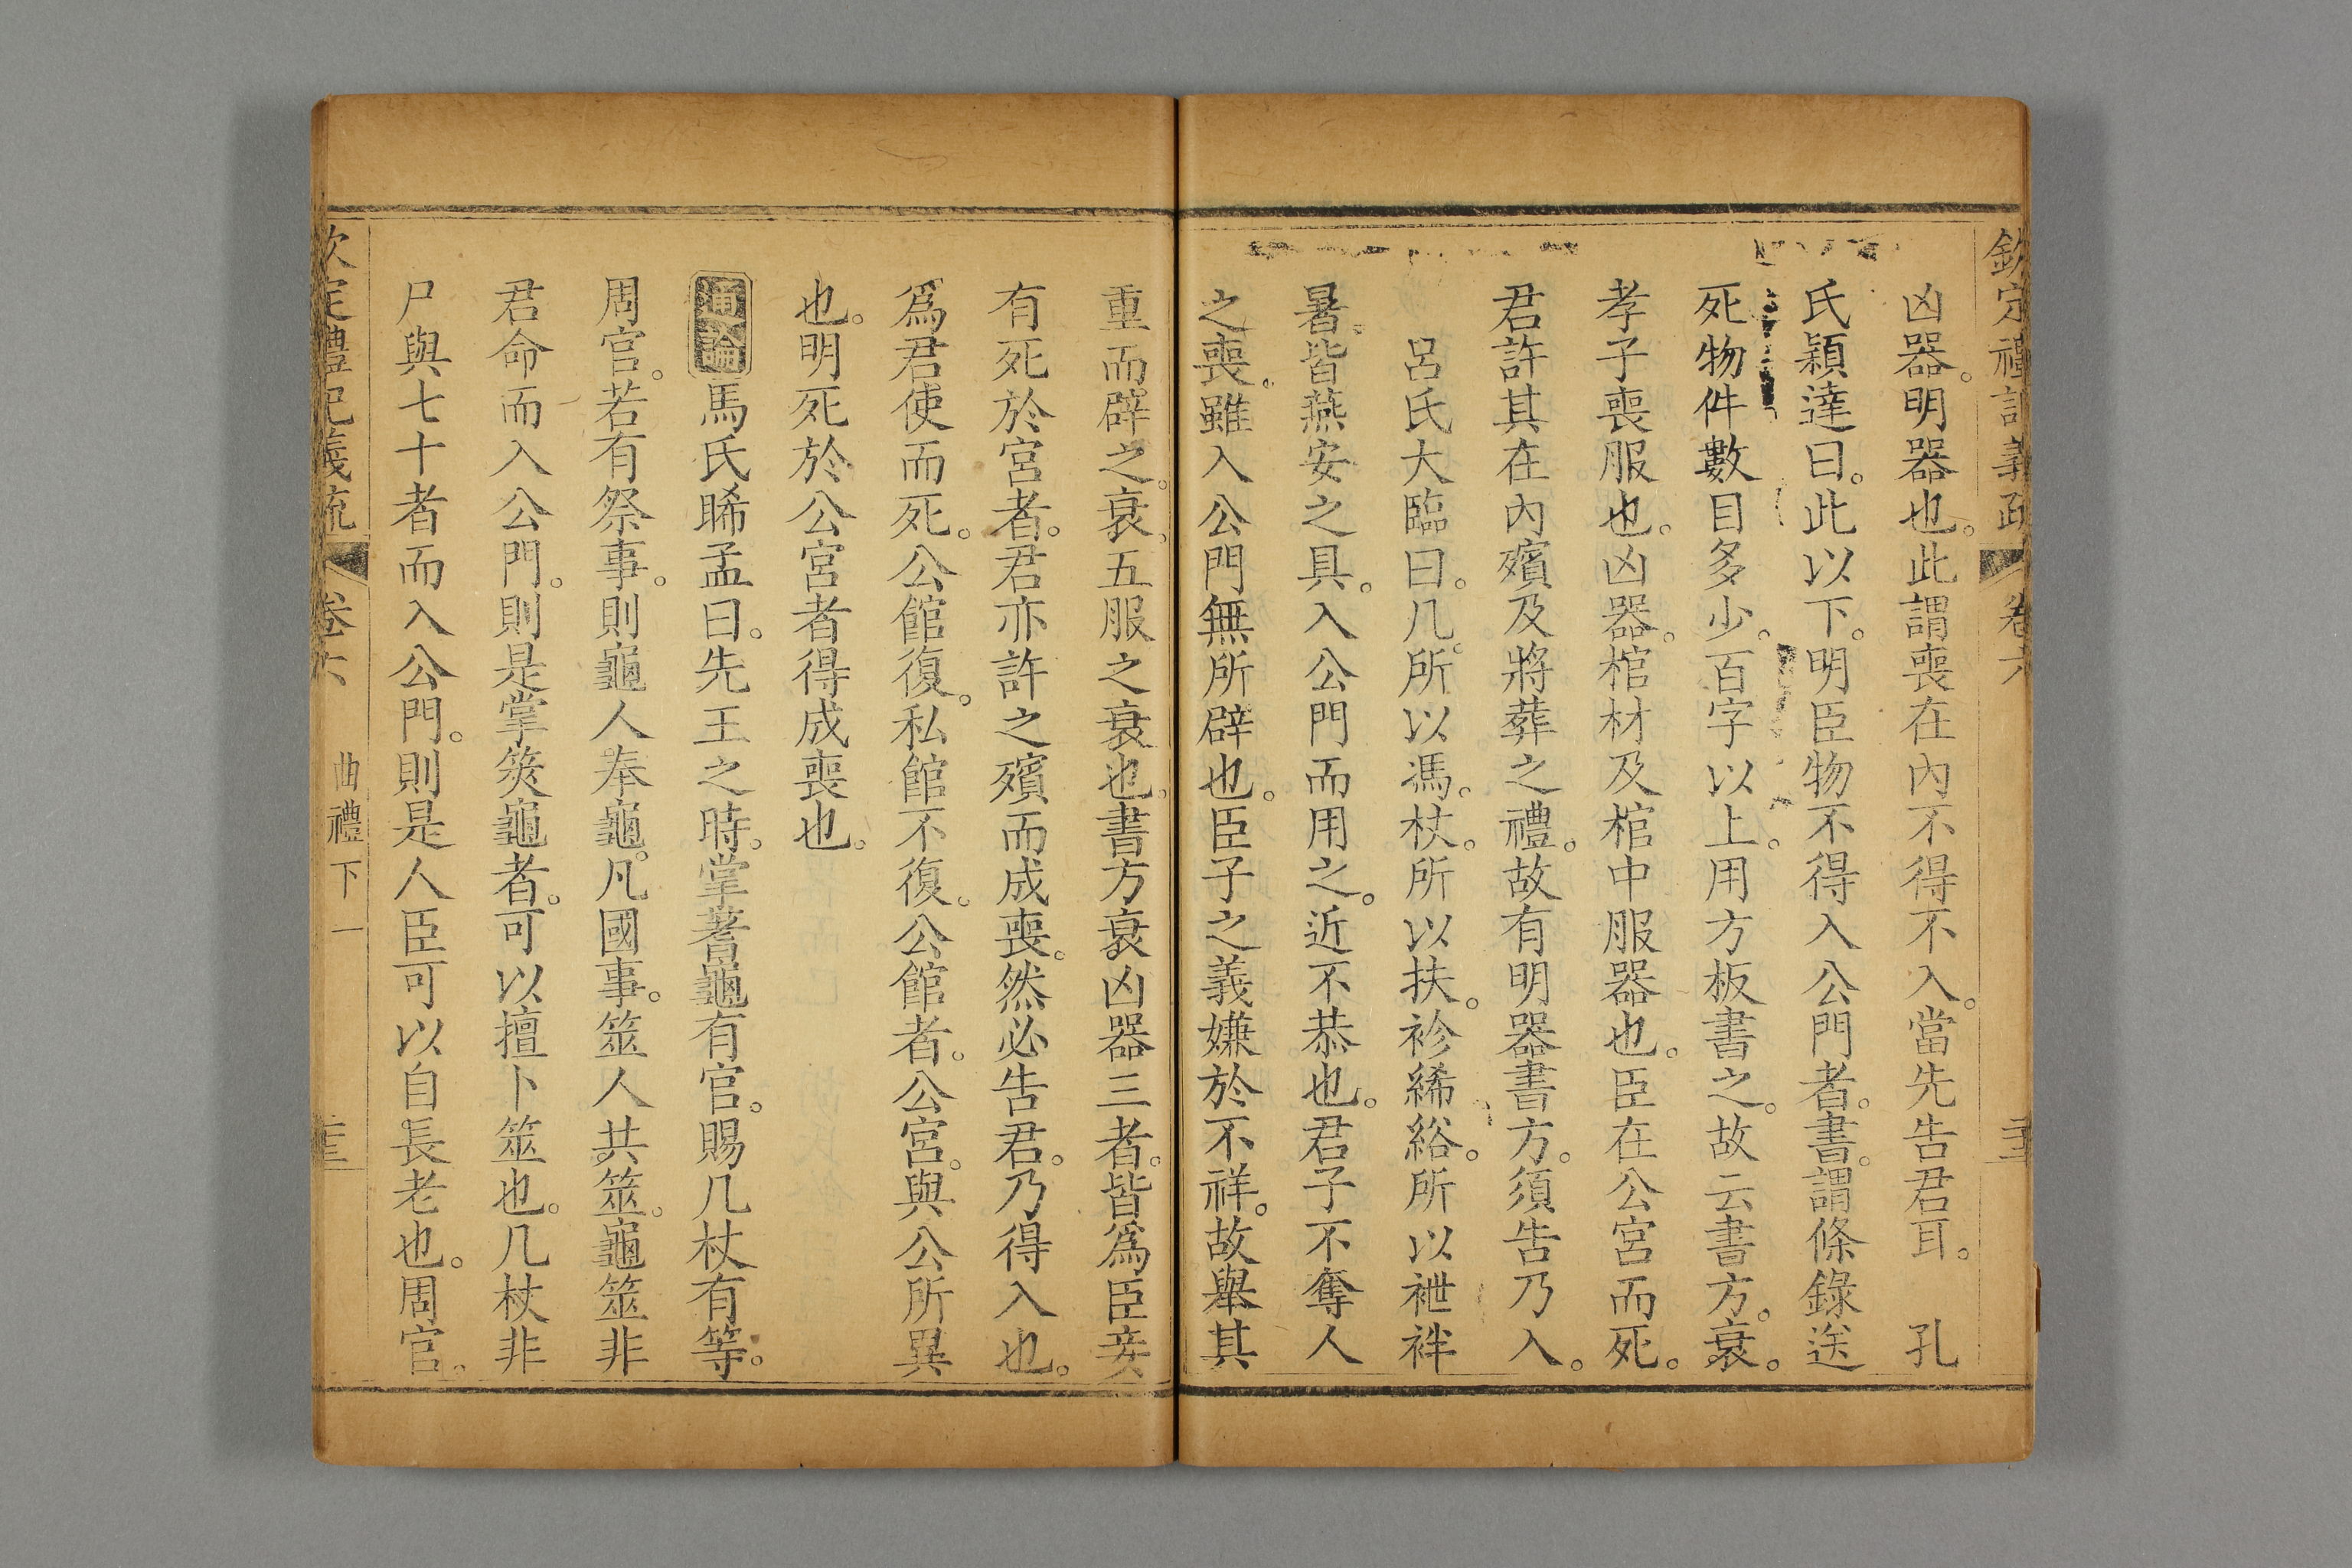 欽定禮記義疏 卷六
凶器。明器也。此謂喪在內不得不入。當先告君耳。 孔
氏穎達曰。此以下。明臣物不得入公門者。書。謂條錄送
死物件數目多少。百字以上。用方板書之。故云書方。衰。
孝子喪服也。凶器。棺材及棺中服器也。臣在公宮而死。
君許其在內殯及將葬之禮。故有明器書方。須告乃入。
呂氏大臨曰。几。所以馮。杖。所以扶。袗絺綌。所以褻袢
暑。皆燕安之具。入公門而用之。近不恭也。君子不奪人
之喪。雖入公門無所辟也。臣子之義嫌於不祥。故舉其
重而辟之。衰。五服之衰也。書方衰凶器三者。皆爲臣妾
有死於宮者。君亦許之殯而成喪。然必告君。乃得入也。
爲君使而死。公館復。私館不復。公館者。公宮。與公所異
也。明死於公宮者得成喪也。
通論 馬氏睎孟曰。先王之時。掌蓍龜有官。賜几杖有等。
周官。若有祭事。則龜人奉龜。凡國事。筮人共筮。龜筮非
君命而入公門。則是掌筴龜者。可以擅卜筮也。几杖非
尸與七十者而入公門。則是人臣可以自長老也。周官。
欽定禮記義疏 卷六 曲禮下一